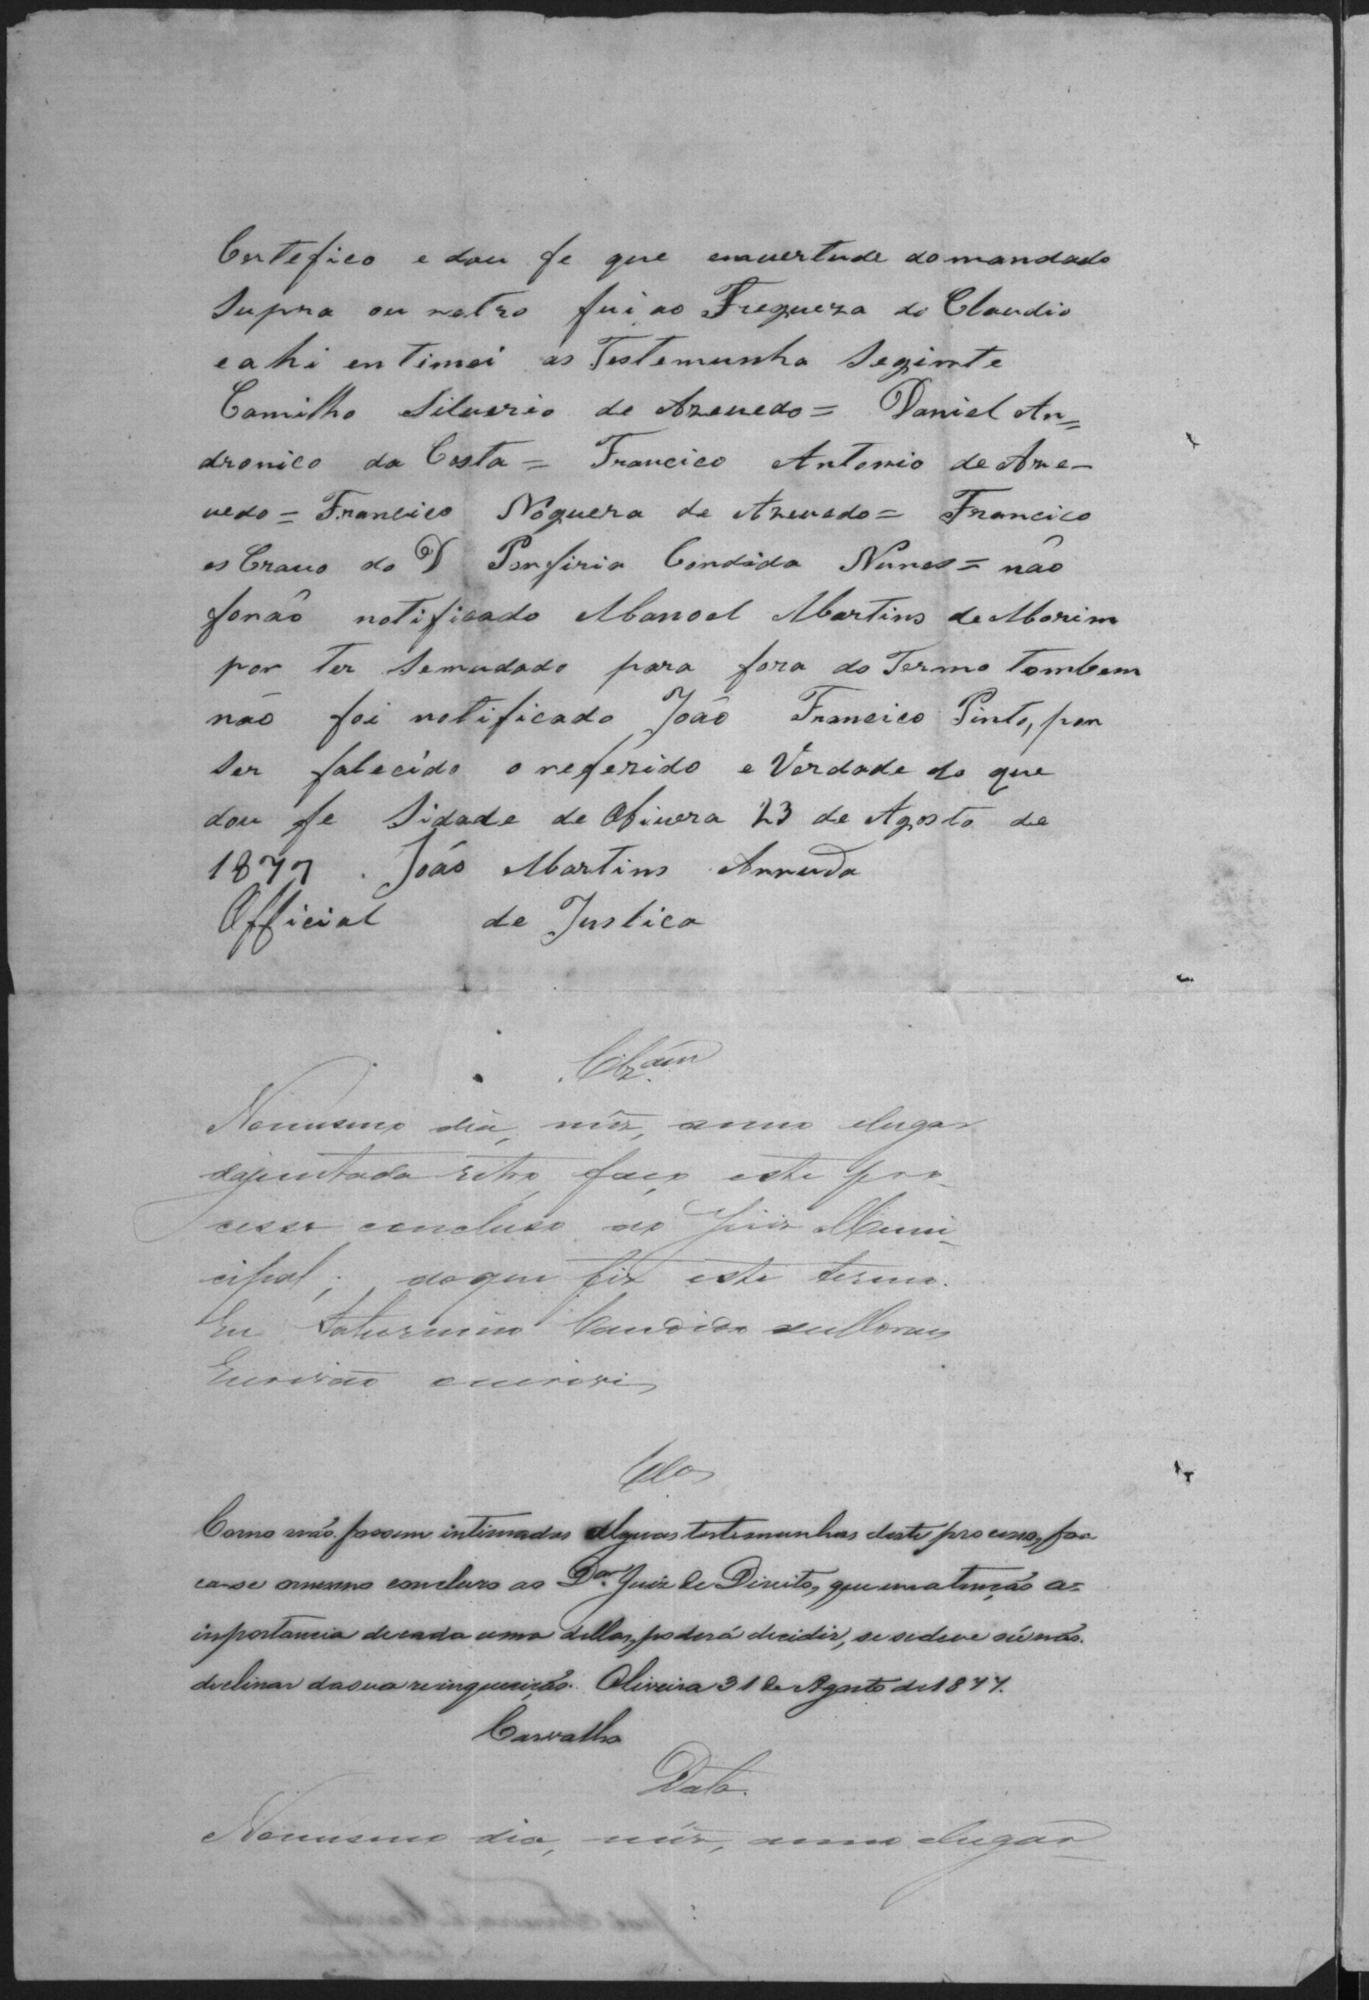 Certefico e dou fe que emvertude do mandado
Supra ou retro fui ao Fregueza do Claudio
e ahi entimei as Testemunha Seginte
Camilho Silverio de Azevedo = Daniel An=
dronico da Costa = Francico Antonio de Aze-
vedo = Francico Noguera de Azevedo = Francico
esCravo do D Porfiria Condida Nunes = não
forão notificado Manoel Martins de Morim
por ter Semudado para fora do Termo tombem
não foi notificado João Francico Pinto, por
Ser falecido o referido e Verdade do que
dou fe Sidade de Olivera 23 de Agosto de
1877. João Martins Arruda
Official de Justica
Clzam
Nomesmo dia, mêz, anno elugar
dajuntada retro faço este pro-
cesso concluso ao Juiz Muni-
cipal; doque fiz este termo.
Eu Saturnino Candido de Moraes
Escrivão escrevi
Clos
Como não fossem intimadas algumas testemunhas deste processo, fa
ca-se o mesmo concluso ao Dor. Juiz de Direito, que em attenção a
importancia de cada uma dellas, poderá decidir, se se deve ou não
declinar da sua reinquerição. Oliveira 31 de Agosto de 1877.
Carvalho
Data.
Nomesmo dia, mêz, anno elugar